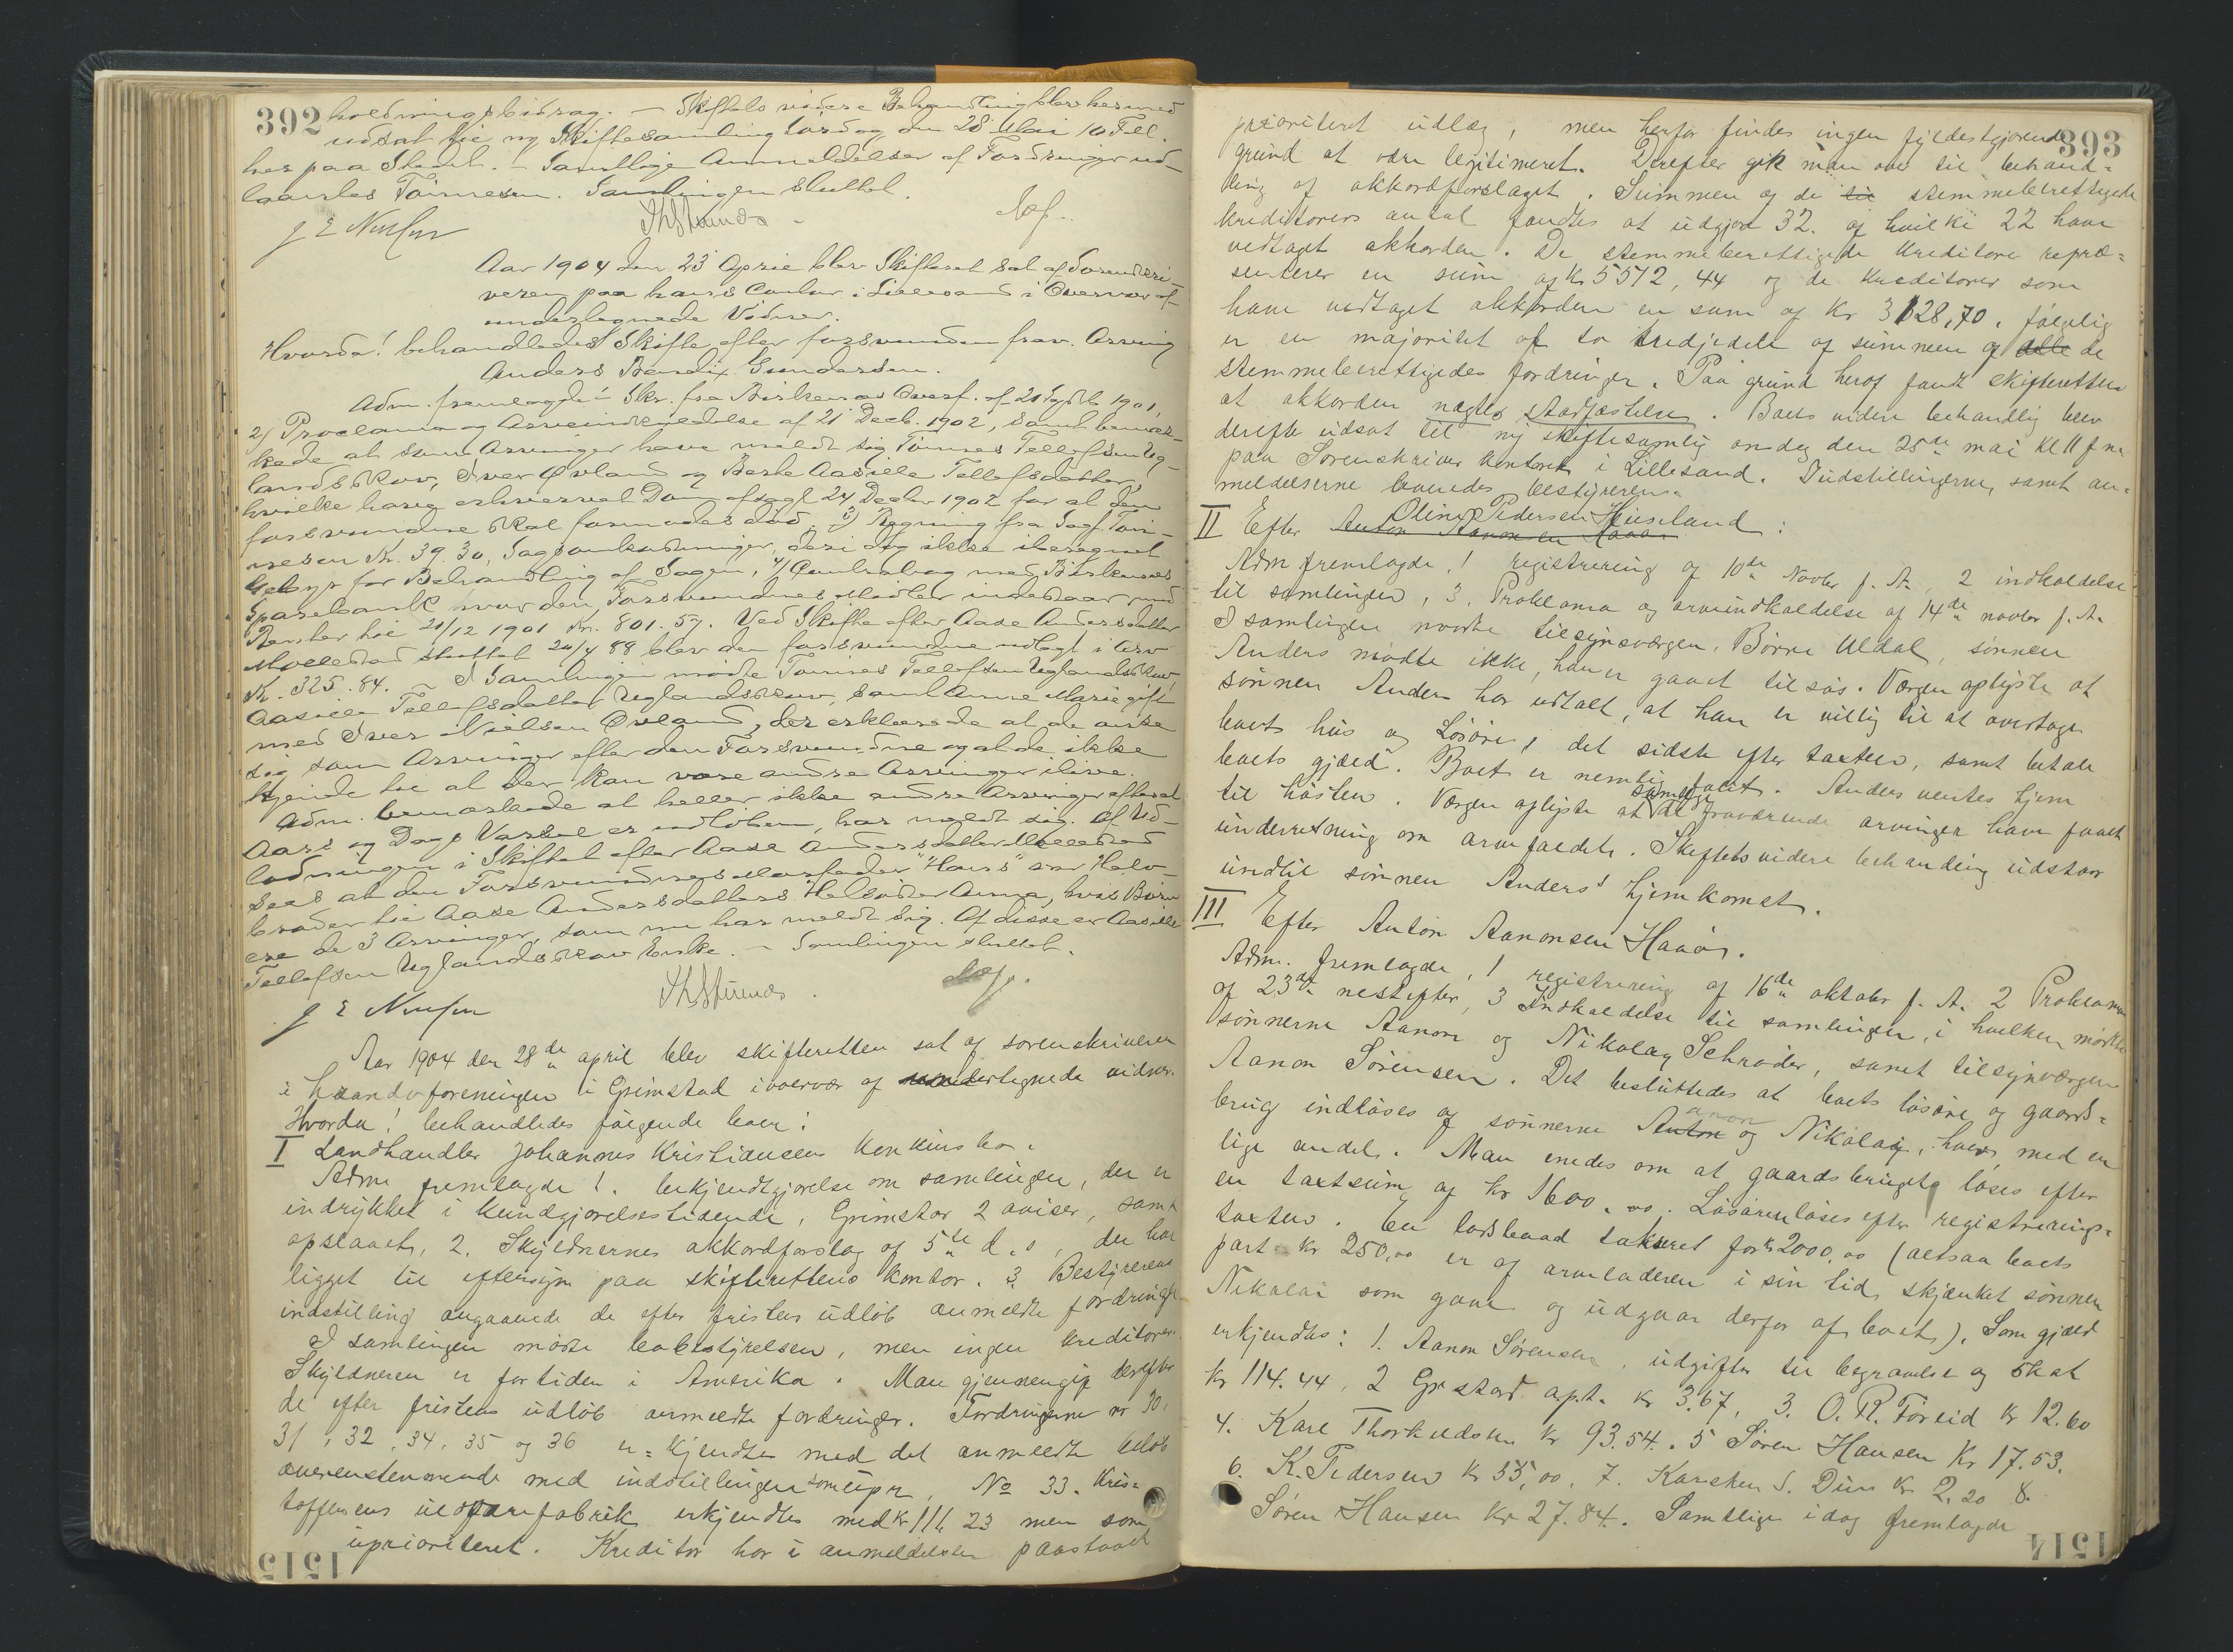 392 holdningsbidrag. — Skiftets videre Behandling blev hermed
udsat til ny Skiftesamling Lördag den 28 Mai 10 Fell.
her paa Stedet. — Samtlige Anmeldelser af Fordringer ud-
laantes Tönnesen. Samlingen sluttet.
Aar 1904 den 23 April blev Skifteret sat af Sorenskri-
veren paa hans Contor i Lillesand i Overvær af
undertegnede Vidner.
Hvorda! behandledes Skifte efter forsvunden frav. Arving
Anders Bendix Gundersen.
Adm. fremlagde 1 Skr. fra Birkenæs Overf. af 20 1901,
2) Proclama og Arveindkaldelse af 21 Decb. 1902, samt bemær-
kede at som Arvinger have meldt sig Tönnes Tellefsen Ug-
landsskov, Iver Övland og Aasille Tellefsdatter,
hvilke have erhvervet Dom afsagt 24 Decbr 1902 for at den
forsvundne skal formodes död, 3) Regning fra Sagf. Tön-
nesen Kr. 39.30, Sagsomkostninger, deri dog ikke iberegnet
Gebyr for Behandling af Sagen, 4) Contrabog med Birkenæs
Sparebank hvor den Forsvundnes Midler indestaar med
Renter til 21/12 1901 Kr. 801.57. Ved Skifte efter Aase Andersdatter
Mollestad sluttet 20/4 89 blev den forsvundne udlagt i Arv
Kr. 325.84. — I Samlingen mödte Tönnes Tellefsen Uglandsskov,
Aasille Tellefsdatter Uglandsskov, samt Anne Marie gift
med Iver Nielsen Övland, der erklærede at de anse
sig som Arvinger efter den Forsvundne og at de ikke
kjende til at der kan være andre Arvinger ilive.
Adm. bemærkede at heller ikke andre Arvinger efterat
Aars og Dags Varsel er udlöben, har meldt sig. Af Ud-
lodningen i Skiftet efter Aase Andersdatter Mollestad
sees at den Forsvundnes Morfader "Hans" var Halv-
broder til Aase Andersdatters Helsöster Anna, hvis Börn
ere de 3 Arvinger, som nu har meldt sig. Af disse er Aasille
Tellefsen Uglandsskov Enke. — Samlingen sluttet.
Aar 1904 den 28de april blev skifteretten sat af sorenskriveren
i haandv.foreningen i Grimstad i overvær af undertegnede vidner.
Hvorda! behandledes fölgende boer:
I Landhandler Johannes Kristiansens konkursbo.
Adm fremlagde 1. bekjendtgjörelse om samlingen, der er
indrykket i kundgjörelsestidende, Grimstads 2 aviser, samt
opslaaet, 2. Skyldnernes akkordforslag af 5te d. s, der har
ligget til eftersyn paa skifterettens kontor. 3. Bestyrerens
indstilling angaaende de efter fristens udlöb anmeldte fordringer
I samlingen mödte bobestyrelsen, men ingen kreditorer.
Skyldneren er fortiden i Amerika. Man gjennemgik derefter
de efter fristens udlöb anmeldte fordringer. Fordringerne nr 30,
31, 32, 34, 35 og 36 er=kjendtes med det anmeldte belöb
overensstemmende med indstillingen som upr, No 33. Kris=
toffersens uldvarefabrik erkjendtes med kr 116,23 men som
uprioriteret. Kreditor har i anmeldelsen paastaaet
1515
393
prioriteret udlæg, men herfor findes ingen fyldestgjörende
grund at være legitimeret. Derefter gik man over til behand=
ling af akkordforslaget. Summen og de til stemmeberettigede
kreditorers antal fandtes at udgjöre 32. af hvilke 22 have
vedtaget akkorden. De stemmeberettigede kreditorer repræ=
senterer en sum af kr 5512,44 og de kreditorer som
have vedtaget akkorden en sum af kr 3128,70, fölgelig
er en majoritet af to trediedele af summen af alle de
stemmeberettigedes fordringer. Paa grund heraf fandt skifteretten
at akkorden nægtes stadfæstelse. Boets videre behandlig blev
derefter udsat til ny skiftesamlig onsdag den 25de mai kl 11 fm
paa Sorenskriver kontoret i Lillesand. Indstillingerne, samt an=
meldelserne leveredes bestyreren.
II Efter Anton Aanonsen Haaö Oline Pedersen Huseland:
Adm fremlagde, 1 registrering af 10de Novbr f. A, 2 indkaldelse
til samlingen, 3. Proklama og arveindkaldelse af 14de novbr f. A.
I samlingen mödte tilsynsværgen, Börre Uldal, sönnen
Anders mödte ikke, han er gaaet tilsös. Værgen oplyste at
sönnen Anders har udtalt, at han er villig til at overtage
boets hus og Lösöre, det sidste efter taxten, samt betale
boets gjæld. Boet er nemlig . Anders ventes hjem
til hösten. Værgen oplyste at samtlige fraværende arvinger have faaet
underretning om arvefaldet. Skiftets videre behandling udstaar
indtil sönnen Anders' hjemkomst.
III Efter Anton Aanonsen Haaö.
Adm. fremlagde, 1 registrering af 16de oktober f. A. 2 Proklama
af 23de nestefter, 3 Indkaldelse til samlingen, i hvilken mödte
sönnerne Aanon og Nikolay Schröder, samt tilsynsværgen
Aanon Sörensen. Det besluttedes at boets lösöre og gaards=
brug indlöses af sönnerne Anton anon og Nikolay, hver med en
lige andel. Man enedes om at gaardsbruget löses efter
en taxtsum af kr 1600.00. Lösören löses efter registrerings=
taxten. En losbaad taxeret for kr 2000,00 (altsaa boets
part kr 250,00 er af arveladeren i sin tid skjænket sönnen
Nikolai som gave og udgaar derfor af boet). Som gjæld
erkjendtes: 1. Aanon Sörensen, udgifter til begravelse og skat
kr 114.44, 2 Grstad apt. kr 3.67, 3. O. R. Föreid kr 12.60
4. Karl Thorkildsen kr 93.54. 5 Sören Hansen kr 17.53.
6. K. Pedersen kr 35,00, 7. Karsten S. Due kr 2,20 8.
Sören Hansen kr 27.84. Samtlige idag fremlagde
1514